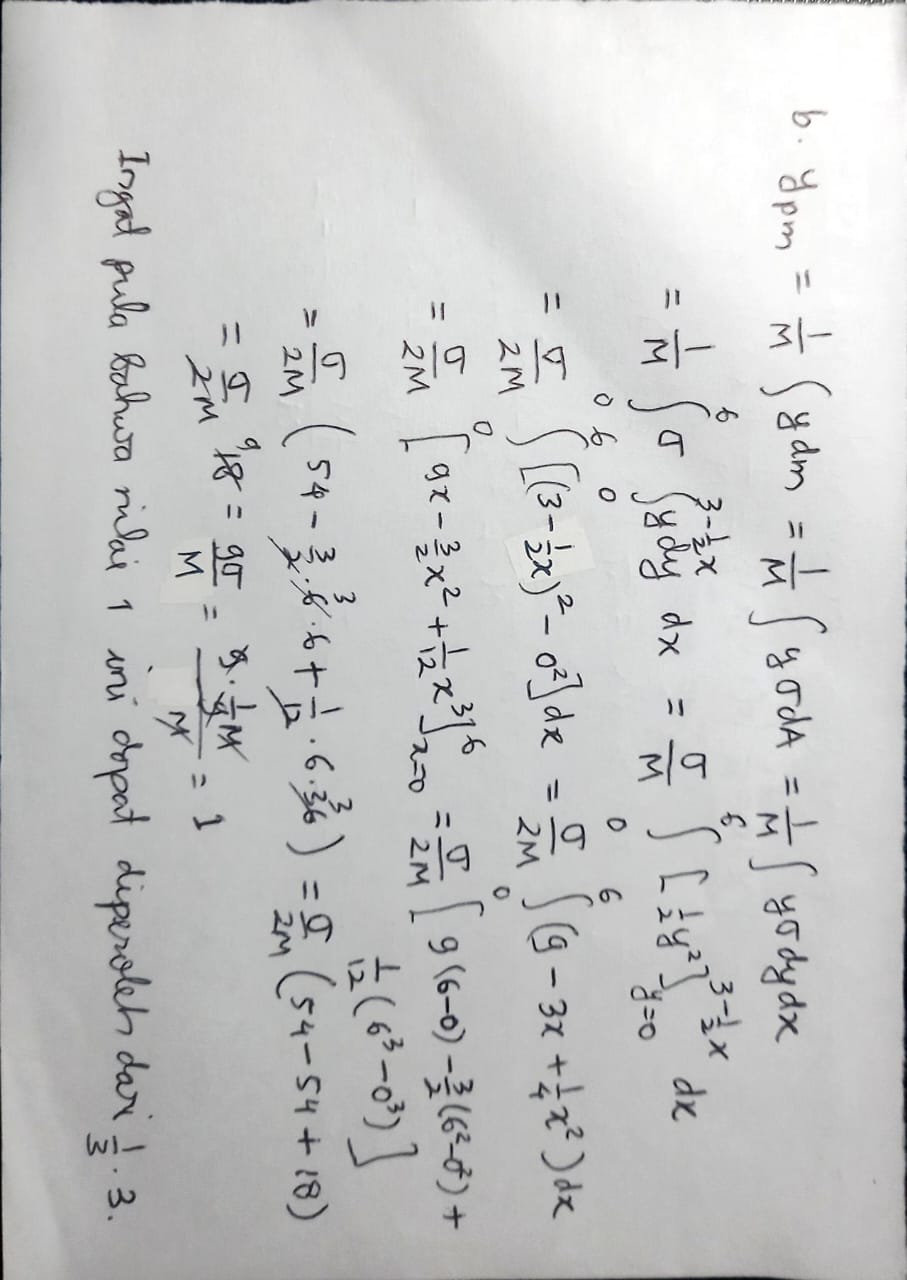 b. y_pm = 1/M ∫ y dm = 1/M ∫ y σ dA = 1/M ∫ y σ dy dx
= 1/M ∫_0^6 σ ∫_0^{3-1/2 x} y dy dx = σ/M ∫_0^6 [1/2 y²]_{y=0}^{3-1/2 x} dx
= σ/2M ∫_0^6 [(3-1/2 x)² - 0²] dx = σ/2M ∫_0^6 (9 - 3x + 1/4 x²) dx
= σ/2M [9x - 3/2 x² + 1/12 x³]_{x=0}^6 = σ/2M [9(6-0) - 3/2 (6²-0²) +
1/12 (6³-0³)]
= σ/2M (54 - 3/2 · 6 3 · 6 + 1/12 · 6 · 36 3) = σ/2M (54 - 54 + 18)
= σ/2M 9 18 = 9σ/M = 9 · 1/9 M / M = 1
Ingat pula bahwa nilai 1 ini dapat diperoleh dari 1/3 · 3.